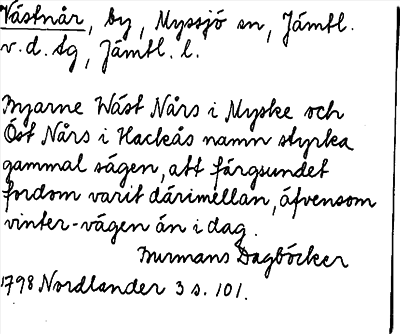 Västnår, by, Myssjö sn, Jämtl.
v. d. tg, Jämtl. l.
Byarne Wäst Nårs i Myske och
Öst Nårs i Hackås namn styrka
gammal sägen, att färgsundet
fordom varit därimellan, äfvensom
vinter-vägen än i dag.
Burmans Dagböcker
1798 Nordlander 3 s. 101.